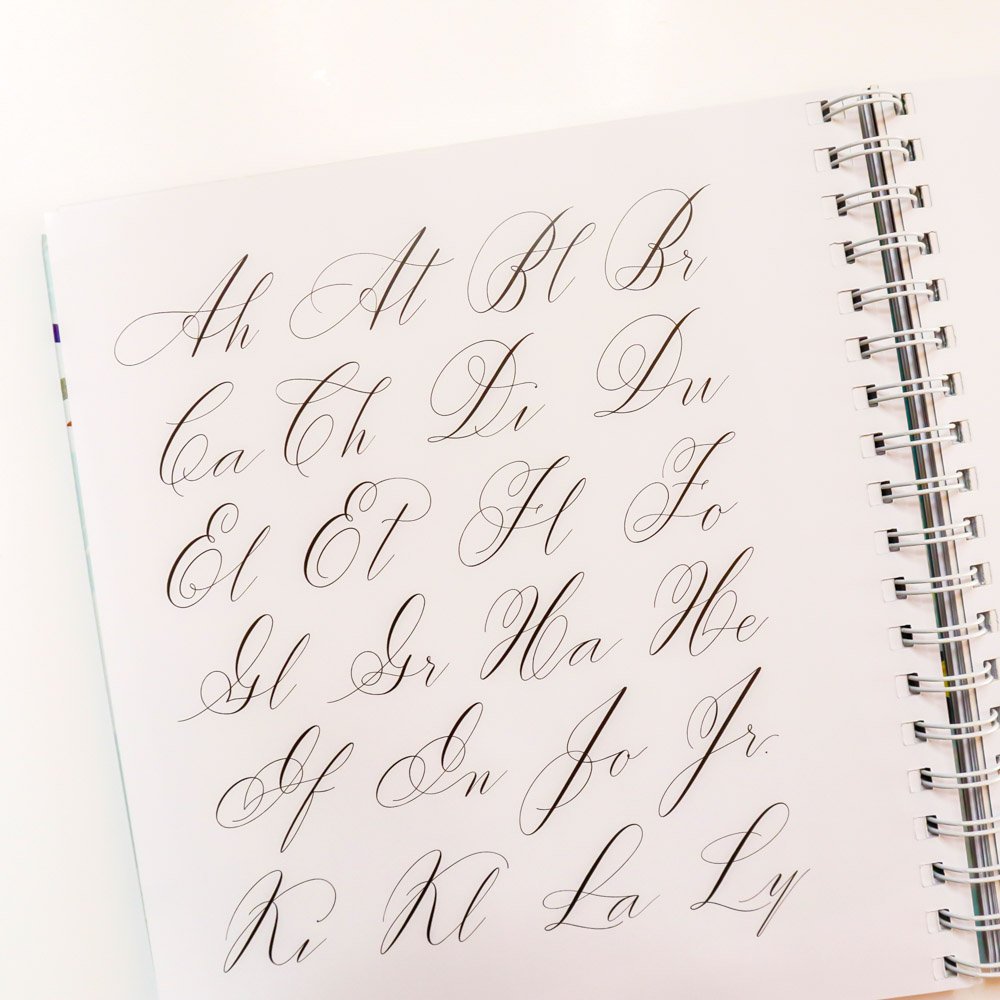 Ah At Bl Br
Ca Ch Di Du
El Et Fl Fo
Gl Gr Ha He
If In Jo Jr.
Ki Kl La Ly